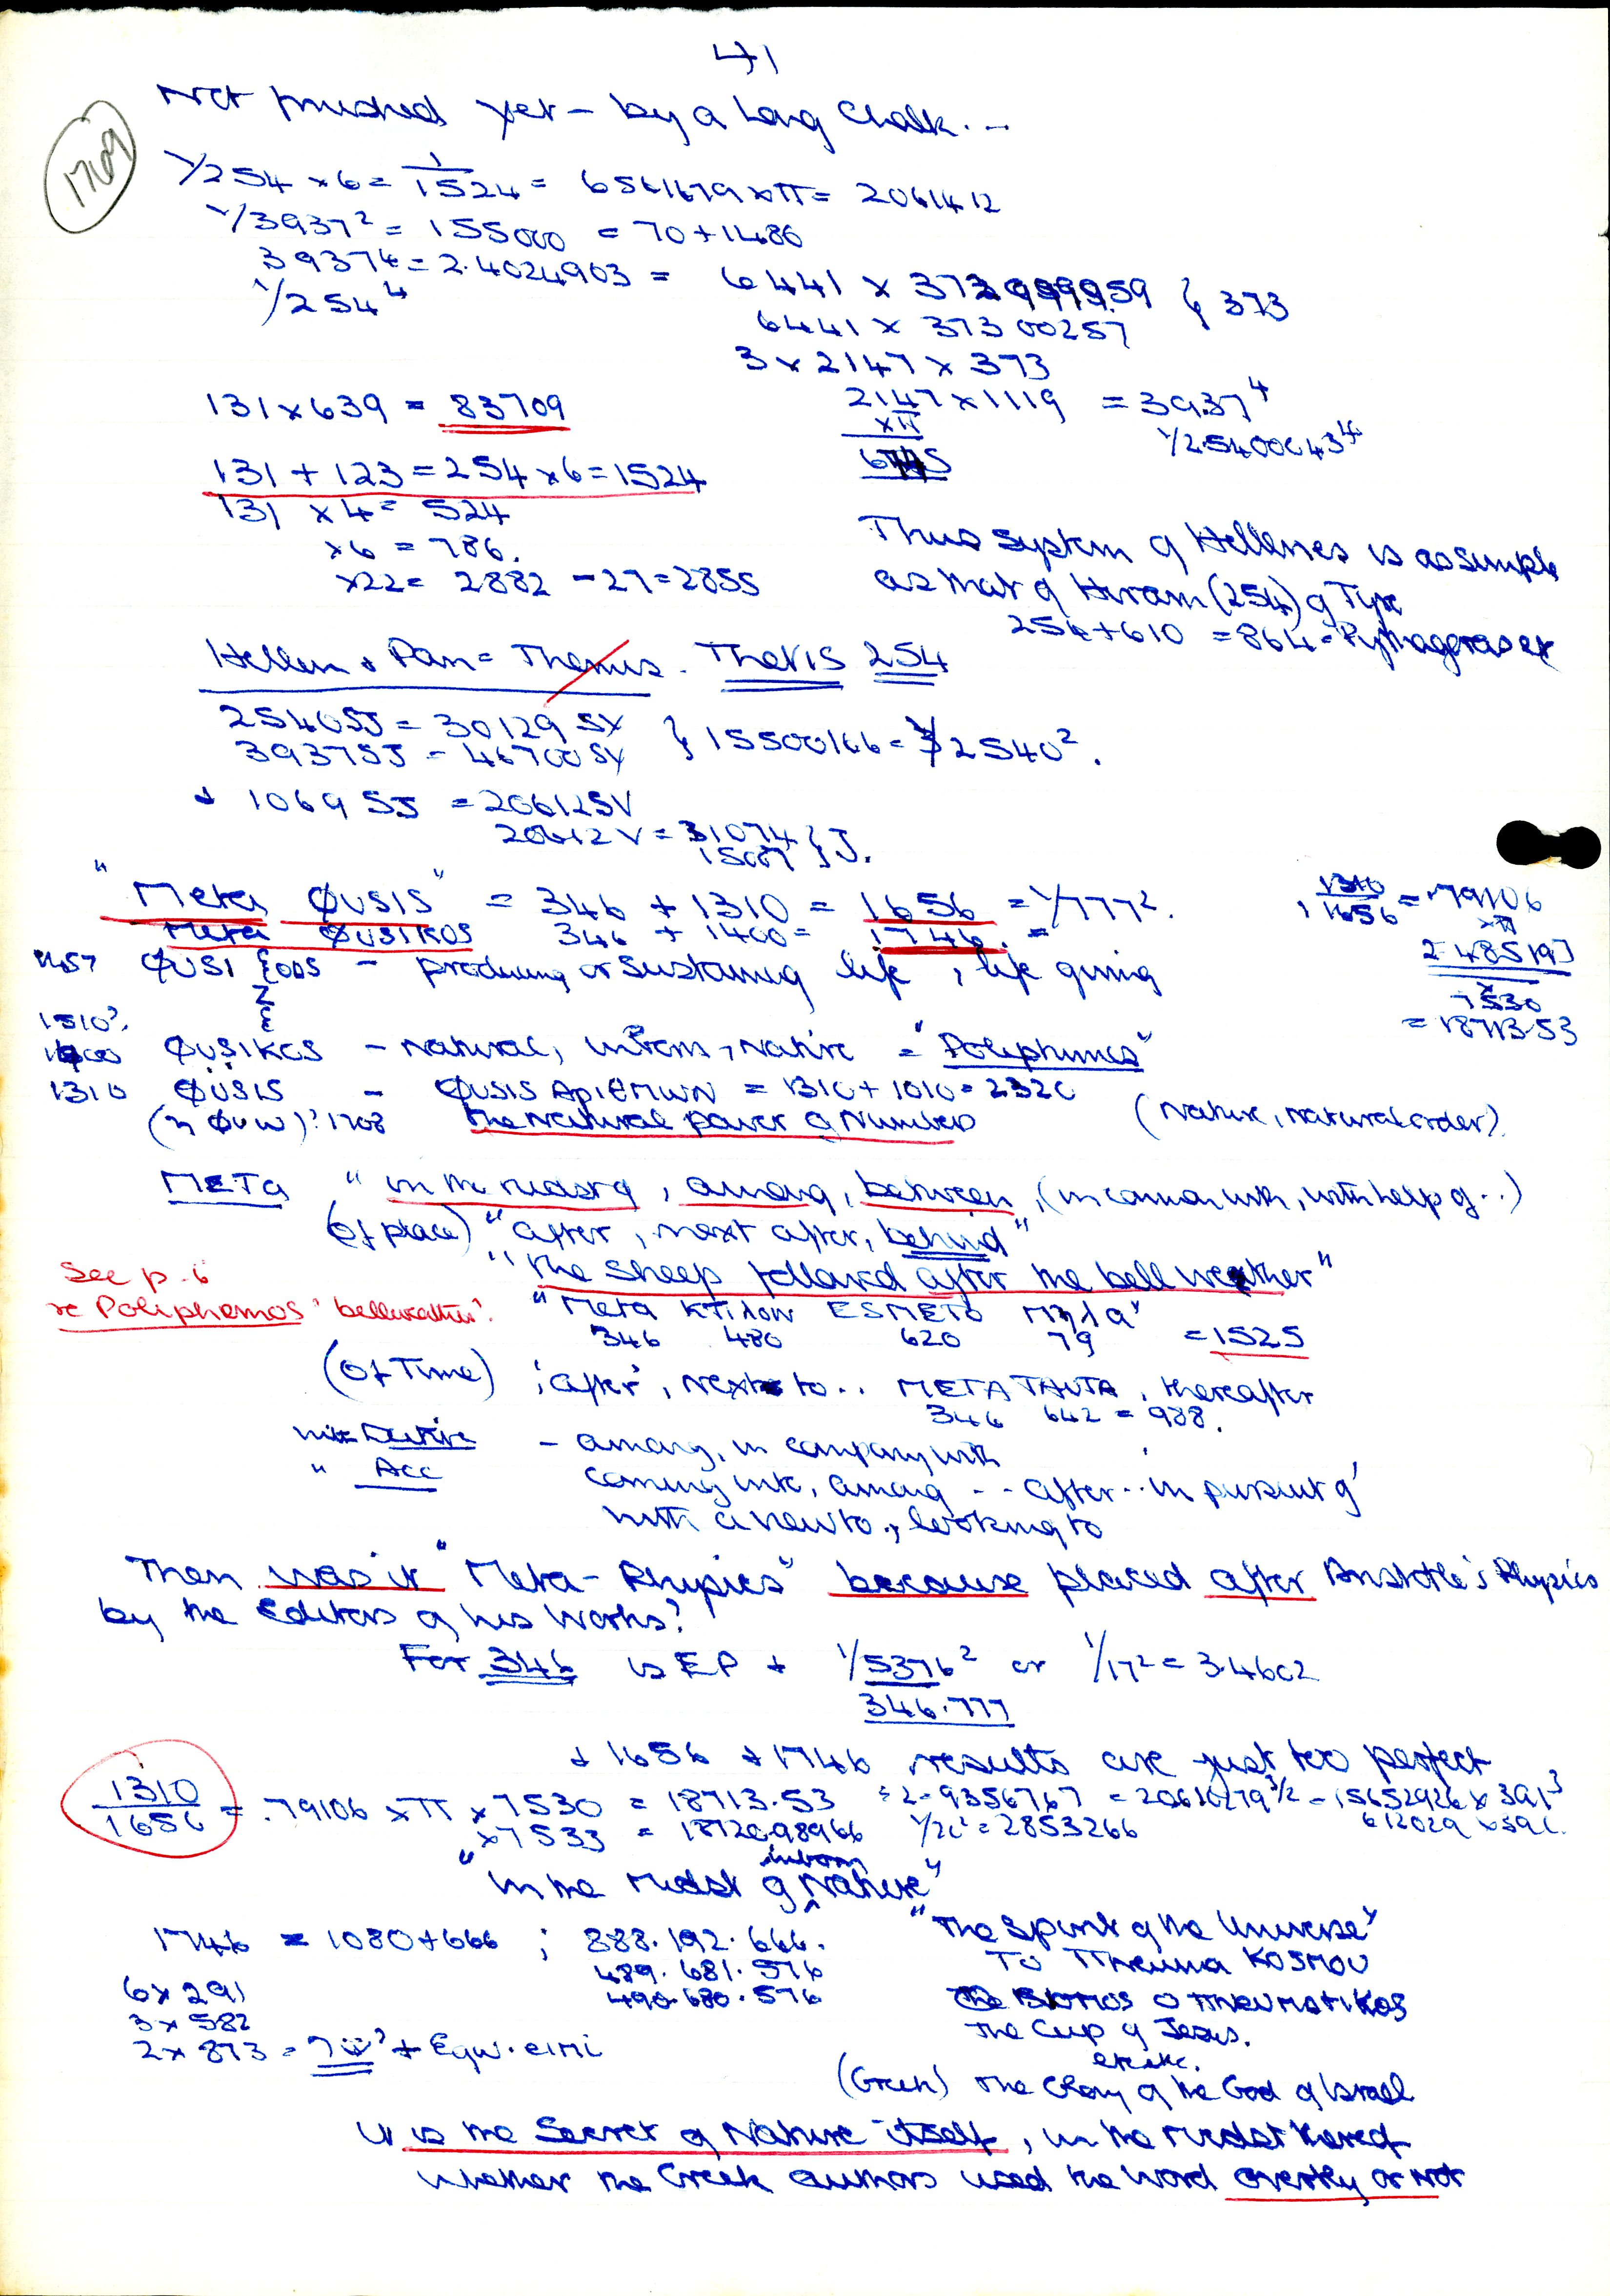 41
Not finished yet – by a long chalk...
1709
1/254 × 6 = 1/1524 = 6561679 × π = 2061412
1/3937² = 155000 = 70 + 1486
3937⁴ = 2.4024903 = 6441 × 373 } 373
1/254⁴
6441 × 37300257
3 × 2147 × 373
131 × 639 = 83709
2147 × 1119 = 39.37⁴
×π
1/2.5400043⁴
131 + 123 = 254 × 6 = 1524
131 × 4 = 524
×6 = 786.
×22 = 2882 – 27 = 2855
Thus system of Hellenes is as simple
as that of Hiram (254) of Tyre
254 + 610 = 864 = Pythagoras
Hellen & Pan = Themis. Thetis 254
2540 SJ = 30129 SY } 15500166 = 1/2540².
3937 SJ = 46700 SY
& 1069 SJ = 20612 SV
20612 V = 31074 } J.
"Meta ΦUSIS" = 346 + 1310 = 1656 = 1/777².
Meta ΦUSIKOS 346 + 1400 = 1746. =
1310/1656 = .79106
×π
2.485197
×
7530
= 18713.53
ΦUSI ZOOS – producing or sustaining life, life giving
Z
1510?
ΦUSIKOS – natural, inborn, native = "Poliphemos"
1310 ΦUSIS – ΦUSIS ApIΘMWN = 1310 + 1010 = 2320
(η ΦUW)? 1708 the natural power of Numbers (nature, natural order)
META "in the midst of, among, between, (in common with, with help of..)
(of place) "after, next after, behind"
"the sheep followed after the bell wether"
See p. 6
re Poliphemos 'bellwether'.
"Meta KTIλOW ESπETO Mηλα"
346 480 620 79 = 1525
(Of Time) 'after', next to.. META TAUTA, thereafter
346 642 = 988.
with Dative – among, in company with
" Acc coming into, among -- after.. in pursuit of'
with a view to, looking to
Then was it "Meta-Physics" because placed after Aristotle's Physics
by the Editors of his Works?
For 346 is EP + 1/5376² or 1/17² = 3.4602
346.777
& 1656 + 1746 results are just too perfect
1310/1656 = .79106 × π × 7530 = 18713.53 ÷2 = 9356767 = 20616279 3/2 = 15652926 × 391³
×7533 = 1/2c² = 2853266
inborn
"In the midst of Nature"
1746 = 1080 + 666 ; 888.192.666.
489.681.576
490.680.576
"The Spirit of the Universe"
TO Πneuma KOSMOU
O ΠNEUMATIKOS
The Cup of Jesus.
etc etc.
6 × 291
3 × 582
2 × 873 = + Egw.eimi
(Greek) The Glory of the God of Israel
It is the Secret of Nature itself, in the midst thereof
whether the Greek authors used the word overtly or not